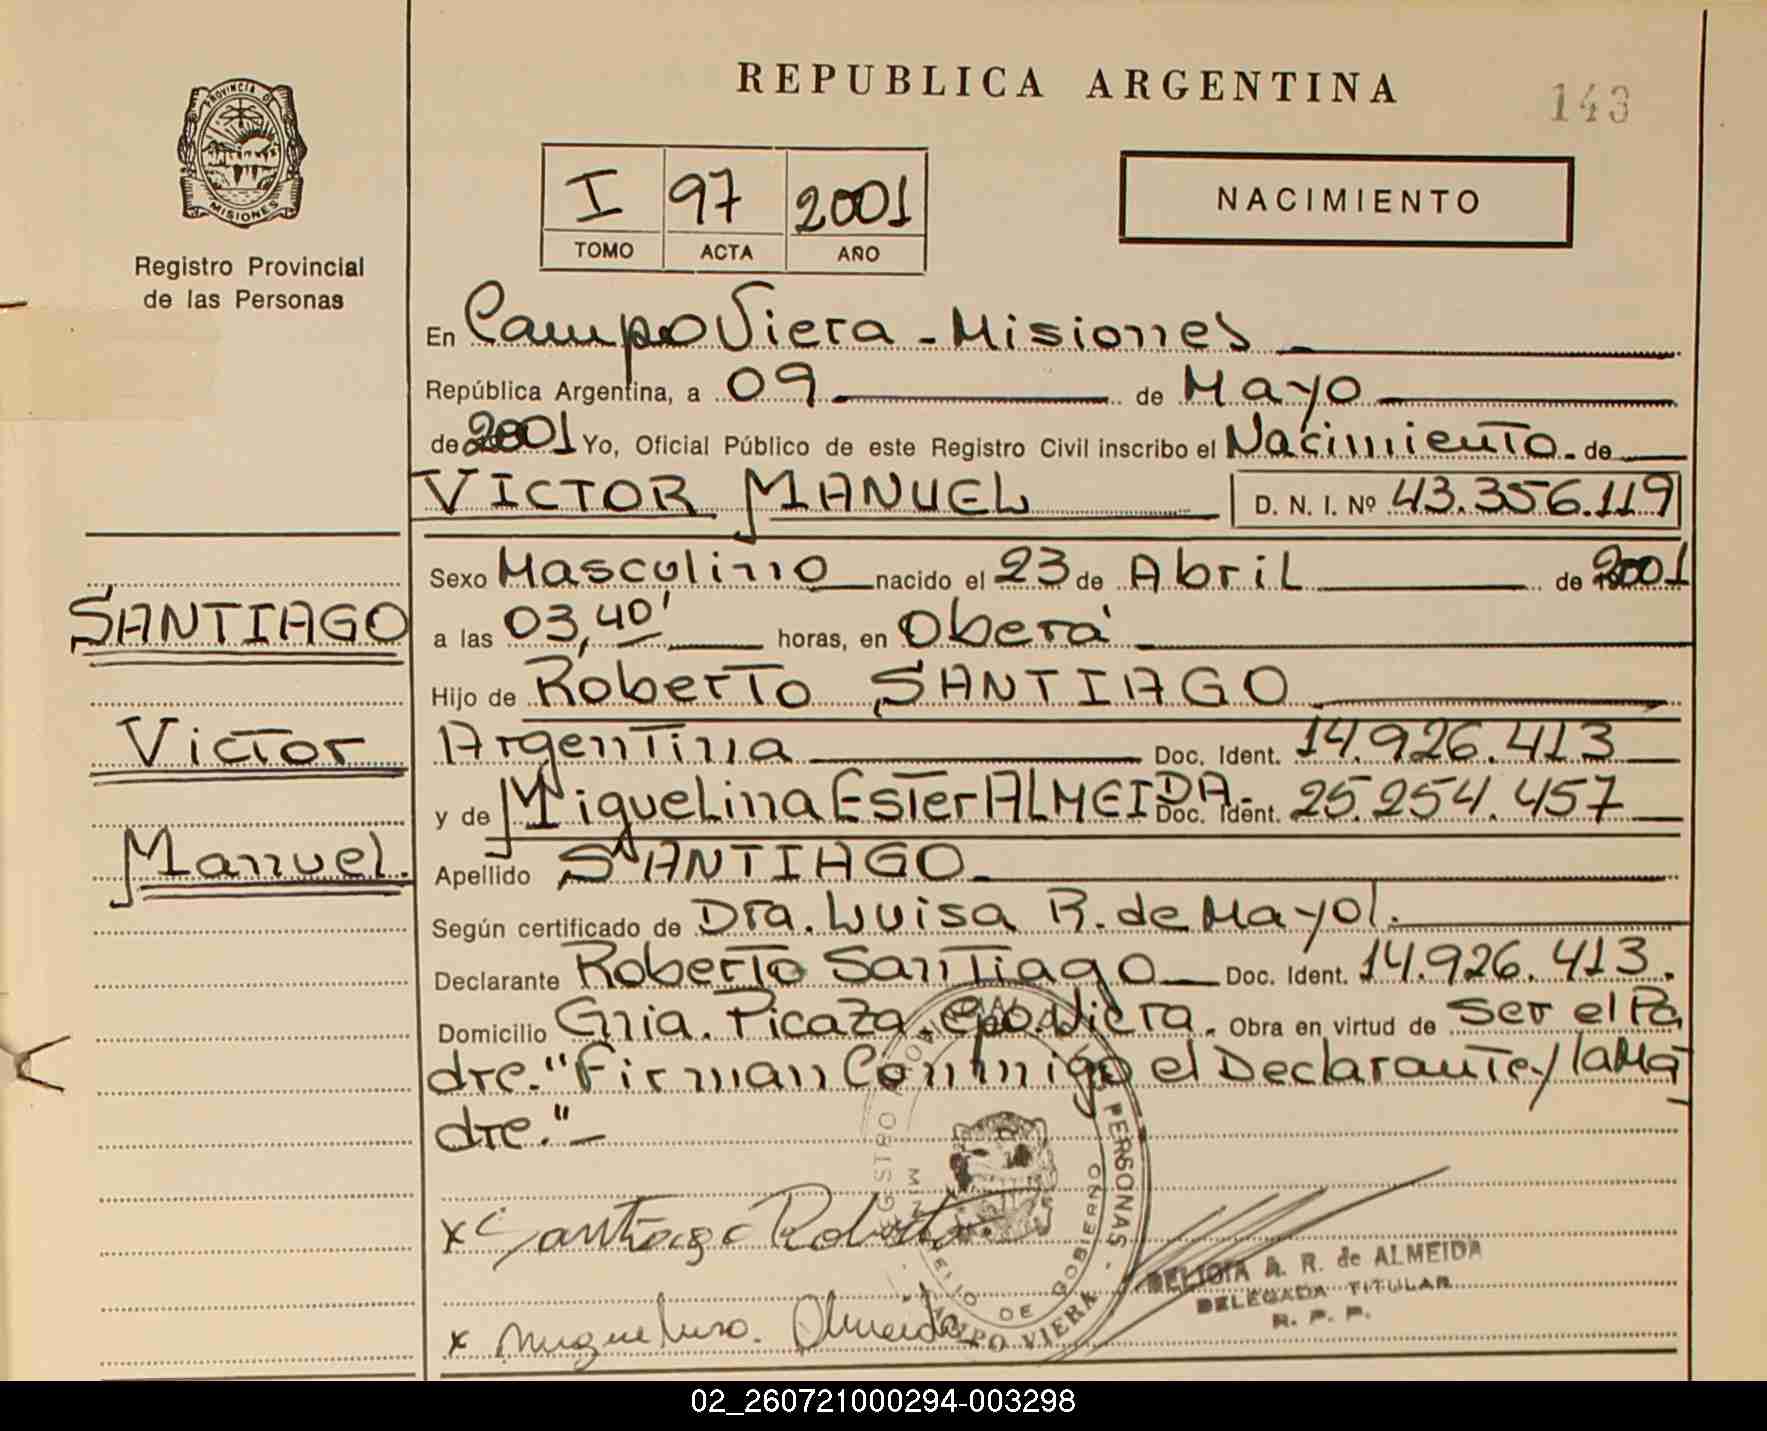 REPUBLICA ARGENTINA
143
PROVINCIA DE
MISIONES
Registro Provincial
de las Personas
I 97 2001
TOMO ACTA AÑO
NACIMIENTO
En Campo Viera - Misiones
República Argentina, a 09 de Mayo
de 2001 Yo, Oficial Público de este Registro Civil inscribo el Nacimiento. de
VICTOR MANUEL D. N. I. Nº 43.356.119
Sexo Masculino nacido el 23 de Abril de 2001
SANTIAGO
a las 03,40' horas, en Oberá
Hijo de Roberto SANTIAGO
Victor
Argentina Doc. Ident. 14.926.413
y de Miguelina Ester ALMEIDA- Doc. Ident. 25.254.457
Manuel.
Apellido SANTIAGO
Según certificado de Dra. Luisa R. de Mayol.
Declarante Roberto Santiago Doc. Ident. 14.926.413.
Domicilio Gnia. Picaza. Cpo. Viera. Obra en virtud de Ser el Pa
dre. "Firman Conmigo el Declarante y la Ma
dre."
PERSONAS
DE GOBIERNO
CAMPO VIERA
x Santiago Roberto
DELICIA A. R. de ALMEIDA
DELEGADA TITULAR
R. P. P.
x Miguelina. Almeida
02_260721000294-003298